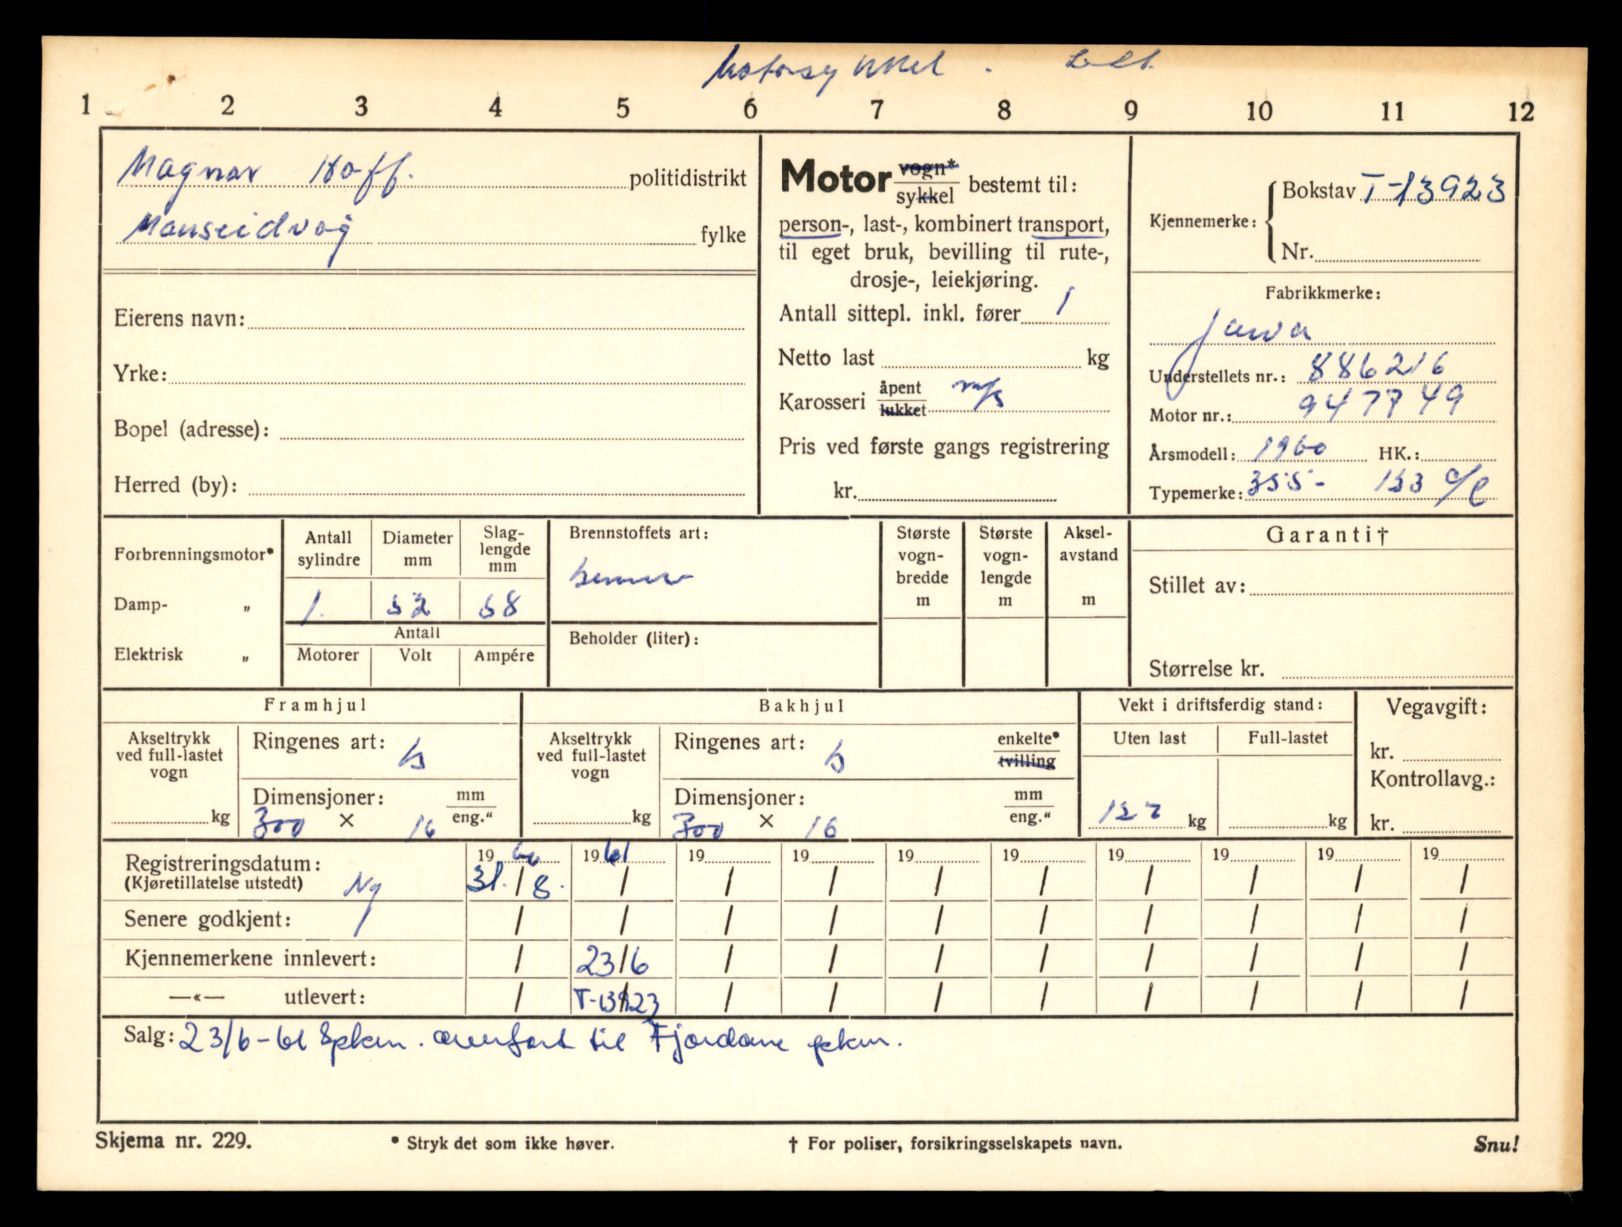 Motorsykkel. Lett.
1 2 3 4 5 6 7 8 9 10 11 12
Magnar Hoff. politidistrikt
Mauseidvåg fylke
Eierens navn:
Yrke:
Bopel (adresse):
Herred (by):
Motor vogn* sykkel bestemt til:
person-, last-, kombinert transport,
til eget bruk, bevilling til rute-,
drosje-, leiekjøring.
Antall sittepl. inkl. fører 1
Netto last kg
Karosseri åpent lukket m/s
Pris ved første gangs registrering
kr.
Kjennemerke: Bokstav T-13923
Nr.
Fabrikkmerke:
Jawa
Understellets nr.: 886216
Motor nr.: 947749
Årsmodell: 1960 HK.:
Typemerke: 355- 123 c/c
Forbrenningsmotor*
Damp- „
Elektrisk „
Antall sylindre Diameter mm Slaglengde mm
1. 52 58
Antall
Motorer Volt Ampére
Brennstoffets art:
bensin
Beholder (liter):
Største vogn-bredde m
Største vogn-lengde m
Aksel-avstand m
Garanti†
Stillet av:
Størrelse kr.
Framhjul
Akseltrykk ved full-lastet vogn
kg
Ringenes art: b
Dimensjoner: mm eng."
300 × 16
Bakhjul
Akseltrykk ved full-lastet vogn
kg
Ringenes art: b enkelte* tvilling
Dimensjoner: mm eng."
300 × 16
Vekt i driftsferdig stand:
Uten last Full-lastet
127 kg kg
Vegavgift:
kr.
Kontrollavg.:
kr.
19 60 19 61 19 19 19 19 19 19 19 19
Registreringsdatum:
(Kjøretillatelse utstedt) Ny 31. / 8. / / / / / / / / /
Senere godkjent: / / / / / / / / / /
Kjennemerkene innlevert: / 23/6 / / / / / / / /
—«— utlevert: / T-13923 / / / / / / / /
Salg: 23/6-61 8pkm. overført til Fjordane pkm.
Skjema nr. 229. * Stryk det som ikke høver. † For poliser, forsikringsselskapets navn. Snu!